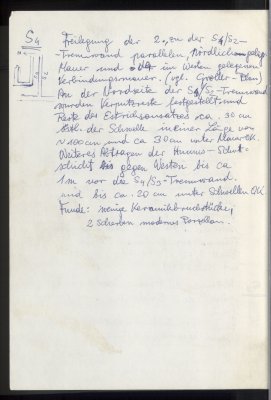 S4 Freilegung der 2., zu der S4/S2-
-Trennwand parallelen, nördlich gelegenen
Mauer und der im Westen gelegenen
Verbindungsmauer. (vgl. Groller-Plan)
An der Nordseite der S4/S2-Trennwand
wurden Verputzreste festgestellt und
Reste des Estrichansatzes ca 30 cm
östl. der Schwelle in einer Länge von
~ 100 cm und ca 30 cm unter Mauer OK.
Weiteres Abtragen der Humus-Schutt-
schicht gegen Westen bis ca
1 m vor die S4/S3-Trennwand.
und bis ca. 20 cm unter Schwellen OK
Funde: wenige Keramikbruchstücke,
2 Scherben modernes Porzellan.